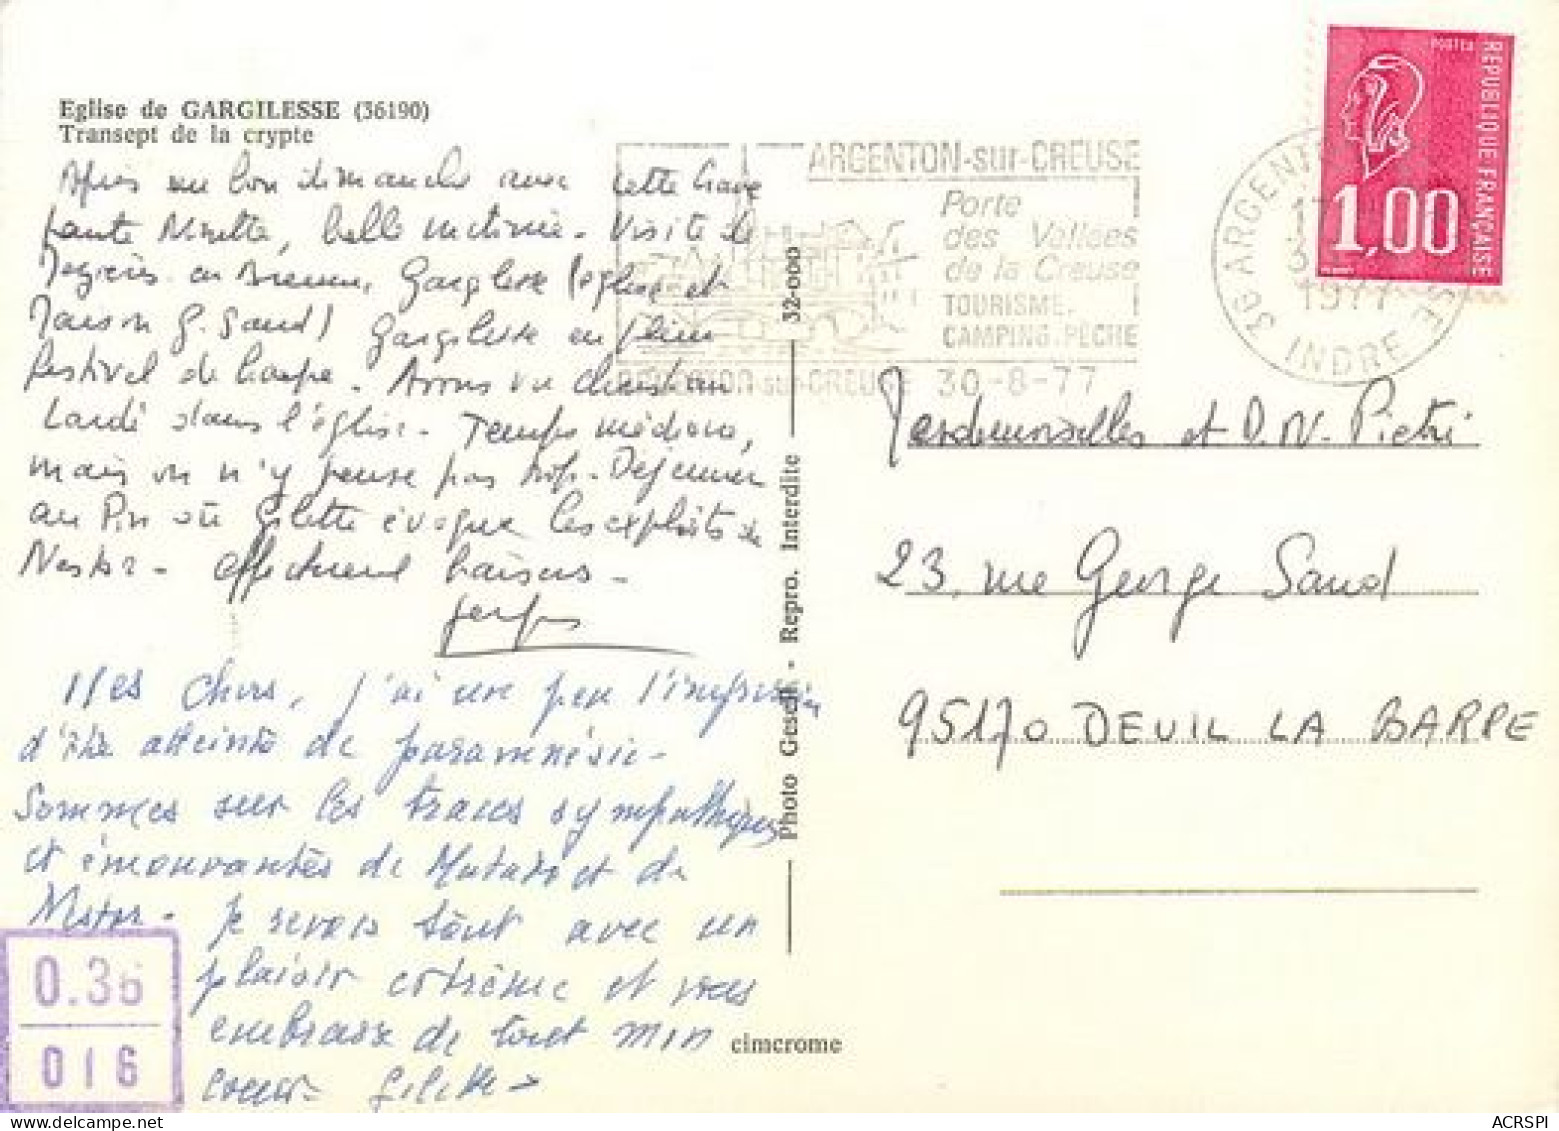 Eglise de GARGILESSE (36190)
Transept de la crypte
Après un bon dimanche avec cette brave
tante Ninette, belle matinée. Visite de
en Brenne, Gargilesse (église et
Maison G. Sand) Gargilesse en plein
festival de harpe. Avons vu Christian
Lardé dans l'église. Temps médiocre,
mais on n'y pense pas trop. Déjeuner
au Pin où Gilette évoque les exploits de
Nestor. Affectueux baisers.
Mes chers, j'ai un peu l'impression
d'être atteinte de paramnésie.
Sommes sur les traces sympathiques
et émouvantes de et de
Nestor. Je revois tout avec un
plaisir extrême et vous
embrasse de tout mon
coeur. Gilette
0.36
016
Photo Gesell. - Repro. Interdite 32-000
cimcrome
ARGENTON-sur-CREUSE
Porte
des Vallées
de la Creuse
TOURISME.
CAMPING.PÊCHE
ARGENTON-sur-CREUSE 30-8-77
36 ARGENTON
1977
INDRE
POSTES
REPUBLIQUE FRANÇAISE
1,00
Mesdemoiselles et D.N. Pietri
23, rue George Sand
95170 DEUIL LA BARRE
ACRSPI